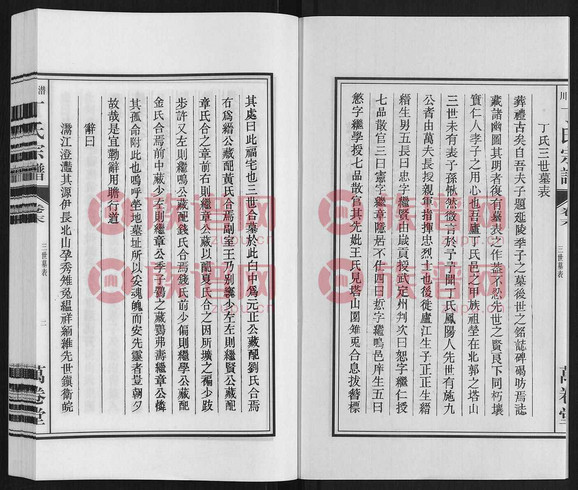 丁氏三世墓表
葬禮古矣自吾夫子題延陵季子之墓後世之銘誌碑碣昉焉誌
藏諸幽圖其明者復有墓表之作蓋不忍先世之賢良下同朽壤
實仁人孝子之用心也吾廬丁氏邑之甲族祖塋在北郭之塔山
三世未有表子孫愀然徵言於予予聞丁氏鳳陽人先世有施九
公者由萬夫長授親軍指揮忠烈士也後徙廬江生子正正生縉
縉生男五長曰忠字繼賢由歲貢授武定州判次曰恕字繼仁授
七品散官三曰憲字繼章隱居不仕四曰哲字繼鳴邑庠生五曰
慜字繼學授七品散官其先妣王氏見塔山圍雉兔合息拔簪標
其處曰此福宅也三世合墓於此台中為元正公藏配劉氏合焉
右為縉公藏配黃氏合焉副室王乃別壙少左左則繼賢公藏配
章氏合之章前右則繼章公藏以配夏氏合之因所壙之褊少跂
步許又左則繼鳴公藏配錢氏合焉錢氏前少偏則繼學公藏配
金氏合焉前中藏少左則繼章公季子鶴之藏鶚弗壽繼章公憐
其孤命附此也嗚呼坐地墓址所以安魂魄而安先靈者豈朝夕
故哉是宜勒辭用贍行道
辭曰
潛江澄灩其源伊長北山孕秀雉兔驅祥緬維先世鎮衛皖
潛
丁氏宗譜
卷六
三世墓表
二
萬卷堂
川
丁氏宗譜
卷六
三世墓表
萬卷堂